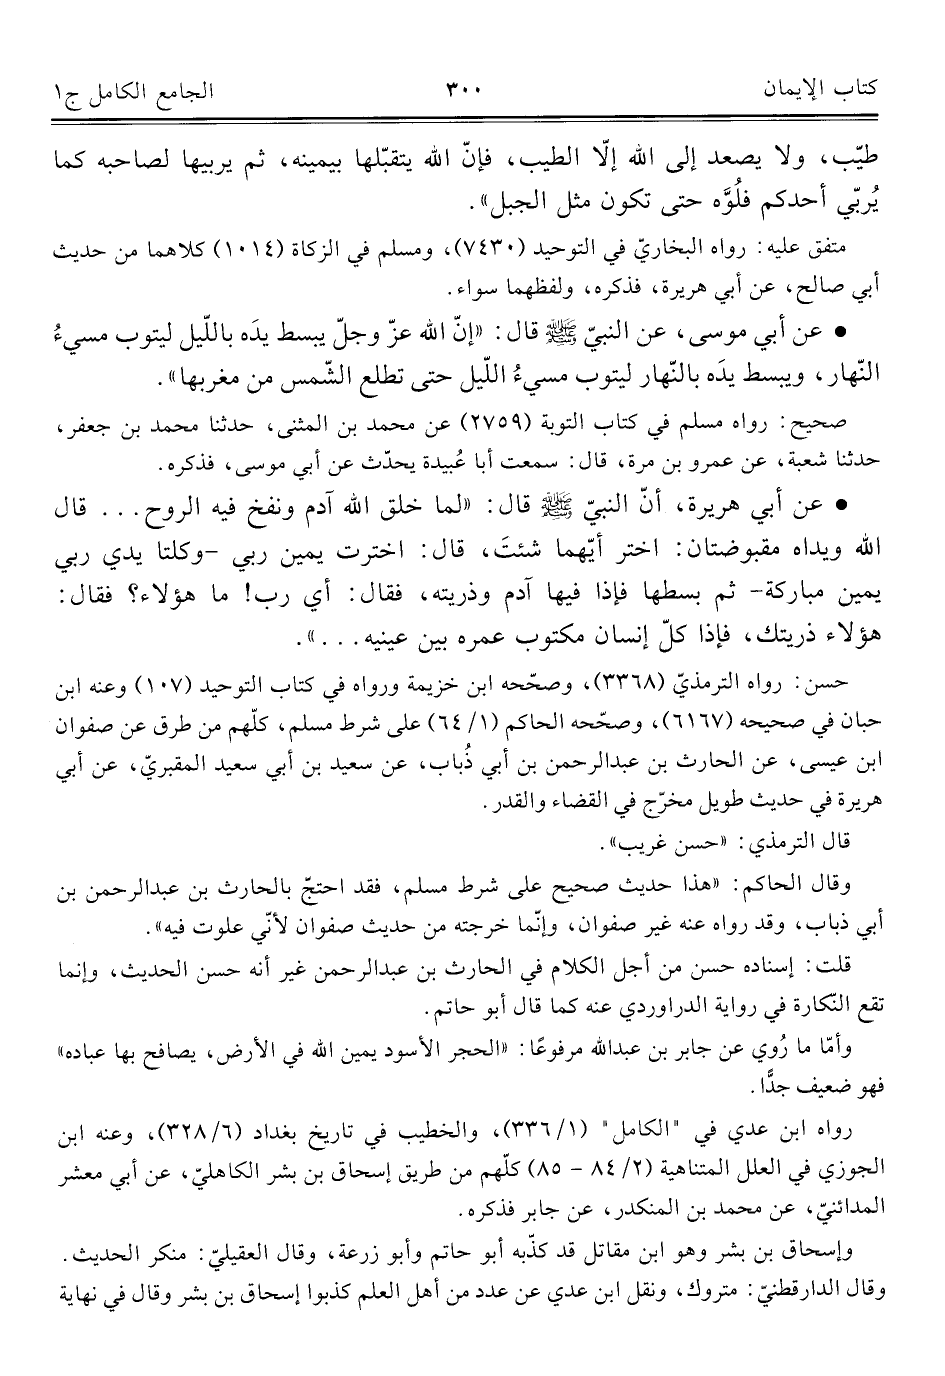 كتاب الإيمان ٣٠٠ الجامع الكامل ج١
طيّب، ولا يصعد إلى الله إلّا الطيب، فإنّ الله يتقبّلها بيمينه، ثم يربيها لصاحبه كما
يُربّي أحدكم فلُوَّه حتى تكون مثل الجبل».
متفق عليه: رواه البخاريّ في التوحيد (٧٤٣٠)، ومسلم في الزكاة (١٠١٤) كلاهما من حديث
أبي صالح، عن أبي هريرة، فذكره، ولفظهما سواء.
• عن أبي موسى، عن النبيّ ﷺ قال: «إنّ الله عزّ وجلّ يبسط يدَه باللّيل ليتوب مسيءُ
النّهار، ويبسط يدَه بالنّهار ليتوب مسيءُ اللّيل حتى تطلع الشّمس من مغربها».
صحيح: رواه مسلم في كتاب التوبة (٢٧٥٩) عن محمد بن المثنى، حدثنا محمد بن جعفر،
حدثنا شعبة، عن عمرو بن مرة، قال: سمعت أبا عُبيدة يحدّث عن أبي موسى، فذكره.
• عن أبي هريرة، أنّ النبيّ ﷺ قال: «لما خلق الله آدم ونفخ فيه الروح... قال
الله ويداه مقبوضتان: اختر أيّهما شئتَ، قال: اخترت يمين ربي -وكلتا يدي ربي
يمين مباركة- ثم بسطها فإذا فيها آدم وذريته، فقال: أي رب! ما هؤلاء؟ فقال:
هؤلاء ذريتك، فإذا كلّ إنسان مكتوب عمره بين عينيه...».
حسن: رواه الترمذيّ (٣٣٦٨)، وصحّحه ابن خزيمة ورواه في كتاب التوحيد (١٠٧) وعنه ابن
حبان في صحيحه (٦١٦٧)، وصحّحه الحاكم (١/ ٦٤) على شرط مسلم، كلّهم من طرق عن صفوان
ابن عيسى، عن الحارث بن عبدالرحمن بن أبي ذُباب، عن سعيد بن أبي سعيد المقبريّ، عن أبي
هريرة في حديث طويل مخرّج في القضاء والقدر.
قال الترمذي: «حسن غريب».
وقال الحاكم: «هذا حديث صحيح على شرط مسلم، فقد احتجّ بالحارث بن عبدالرحمن بن
أبي ذباب، وقد رواه عنه غير صفوان، وإنّما خرجته من حديث صفوان لأنّي علوت فيه».
قلت: إسناده حسن من أجل الكلام في الحارث بن عبدالرحمن غير أنه حسن الحديث، وإنما
تقع النّكارة في رواية الدراوردي عنه كما قال أبو حاتم.
وأمّا ما رُوي عن جابر بن عبدالله مرفوعًا: «الحجر الأسود يمين الله في الأرض، يصافح بها عباده»
فهو ضعيف جدًّا.
رواه ابن عدي في "الكامل" (١/ ٣٣٦)، والخطيب في تاريخ بغداد (٦/ ٣٢٨)، وعنه ابن
الجوزي في العلل المتناهية (٢/ ٨٤ - ٨٥) كلّهم من طريق إسحاق بن بشر الكاهليّ، عن أبي معشر
المدائنيّ، عن محمد بن المنكدر، عن جابر فذكره.
وإسحاق بن بشر وهو ابن مقاتل قد كذّبه أبو حاتم وأبو زرعة، وقال العقيليّ: منكر الحديث.
وقال الدارقطنيّ: متروك، ونقل ابن عدي عن عدد من أهل العلم كذبوا إسحاق بن بشر وقال في نهاية